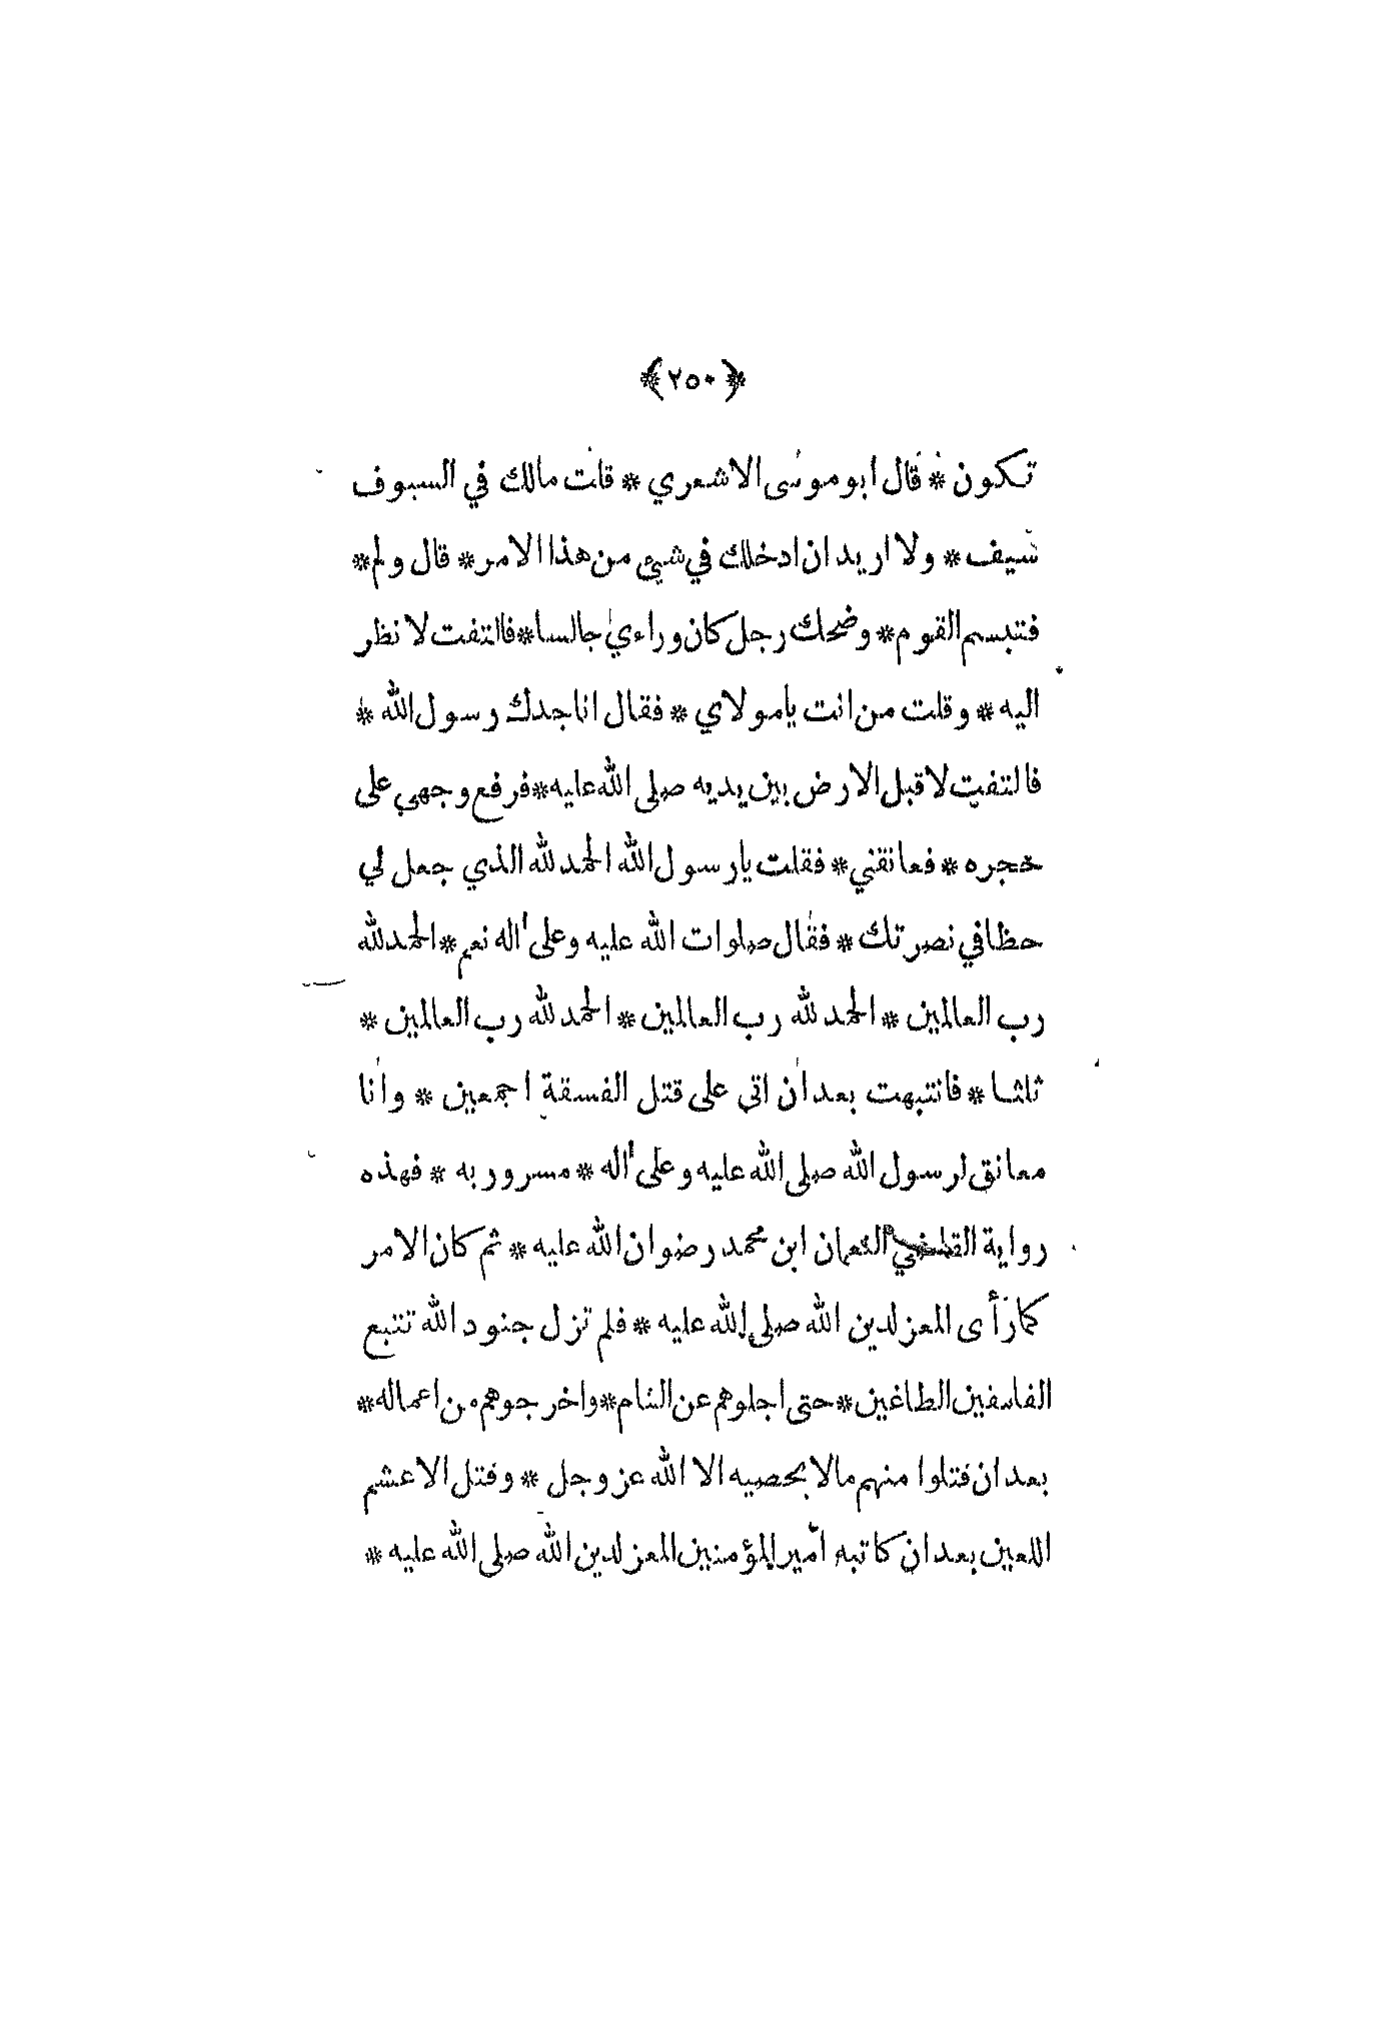 ﴿٢٥٠﴾
تكون * قال ابوموسى الاشعري * قلت مالك في السيوف
سيف * ولا اريدان ادخلك في شيئ من هذا الامر * قال ولم *
فتبسم القوم * وضحك رجل كان وراءي جالسا * فالتفت لانظر
اليه * وقلت من انت يامولاي * فقال اناجدك رسول الله *
فالتفت لاقبل الارض بين يديه صلى الله عليه * فرفع وجهي على
حجره * فعانقني * فقلت يارسول الله الحمدلله الذي جعل لي
حظافي نصرتك * فقال صلوات الله عليه وعلى اله نعم * الحمدلله
رب العالمين * الحمدلله رب العالمين * الحمدلله رب العالمين *
ثلثا * فانتبهت بعدان اتى على قتل الفسقة اجمعين * وانا
معانق لرسول الله صلى الله عليه وعلى اله * مسروربه * فهذه
رواية القاضي النعمان ابن محمد رضوان الله عليه * ثم كان الامر
كمارأى المعزلدين الله صلى الله عليه * فلم تزل جنودالله تتبع
الفاسقين الطاغين * حتى اجلوهم عن الشام * واخرجوهم من اعماله *
بعدان قتلوا منهم مالايحصيه الا الله عزوجل * وقتل الاعشم
اللعين بعدان كاتبه امير المؤمنين المعزلدين الله صلى الله عليه *